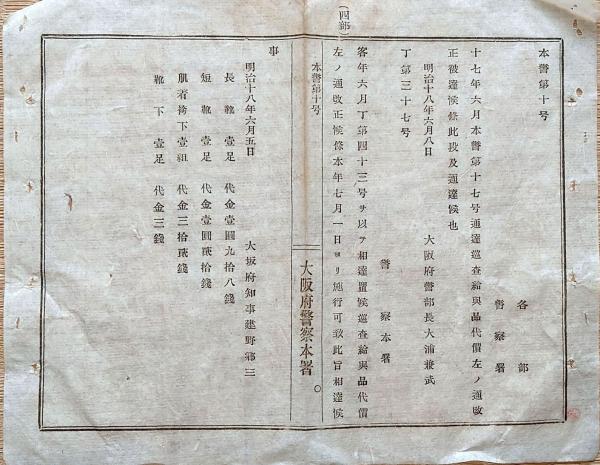 本警第十号
各部
警察署
十七年六月本警第十七号通達巡査給與品代價左ノ通改
正被達候條此段及通達候也
明治十八年六月八日
大阪府警部長大浦兼武
丁第三十七号
警察本署
客年六月丁第四十三号ヲ以テ相達置候巡査給與品代價
左ノ通改正候條本年七月一日ヨリ施行可致此旨相達候
(四部)
本警第十号
大阪府警察本署
事
明治十八年六月五日
大坂府知事建野郷三
長靴壹足 代金壹圓九拾八錢
短靴壹足 代金壹圓貮拾錢
肌着袴下壹組 代金三拾貮錢
靴下壹足 代金三錢